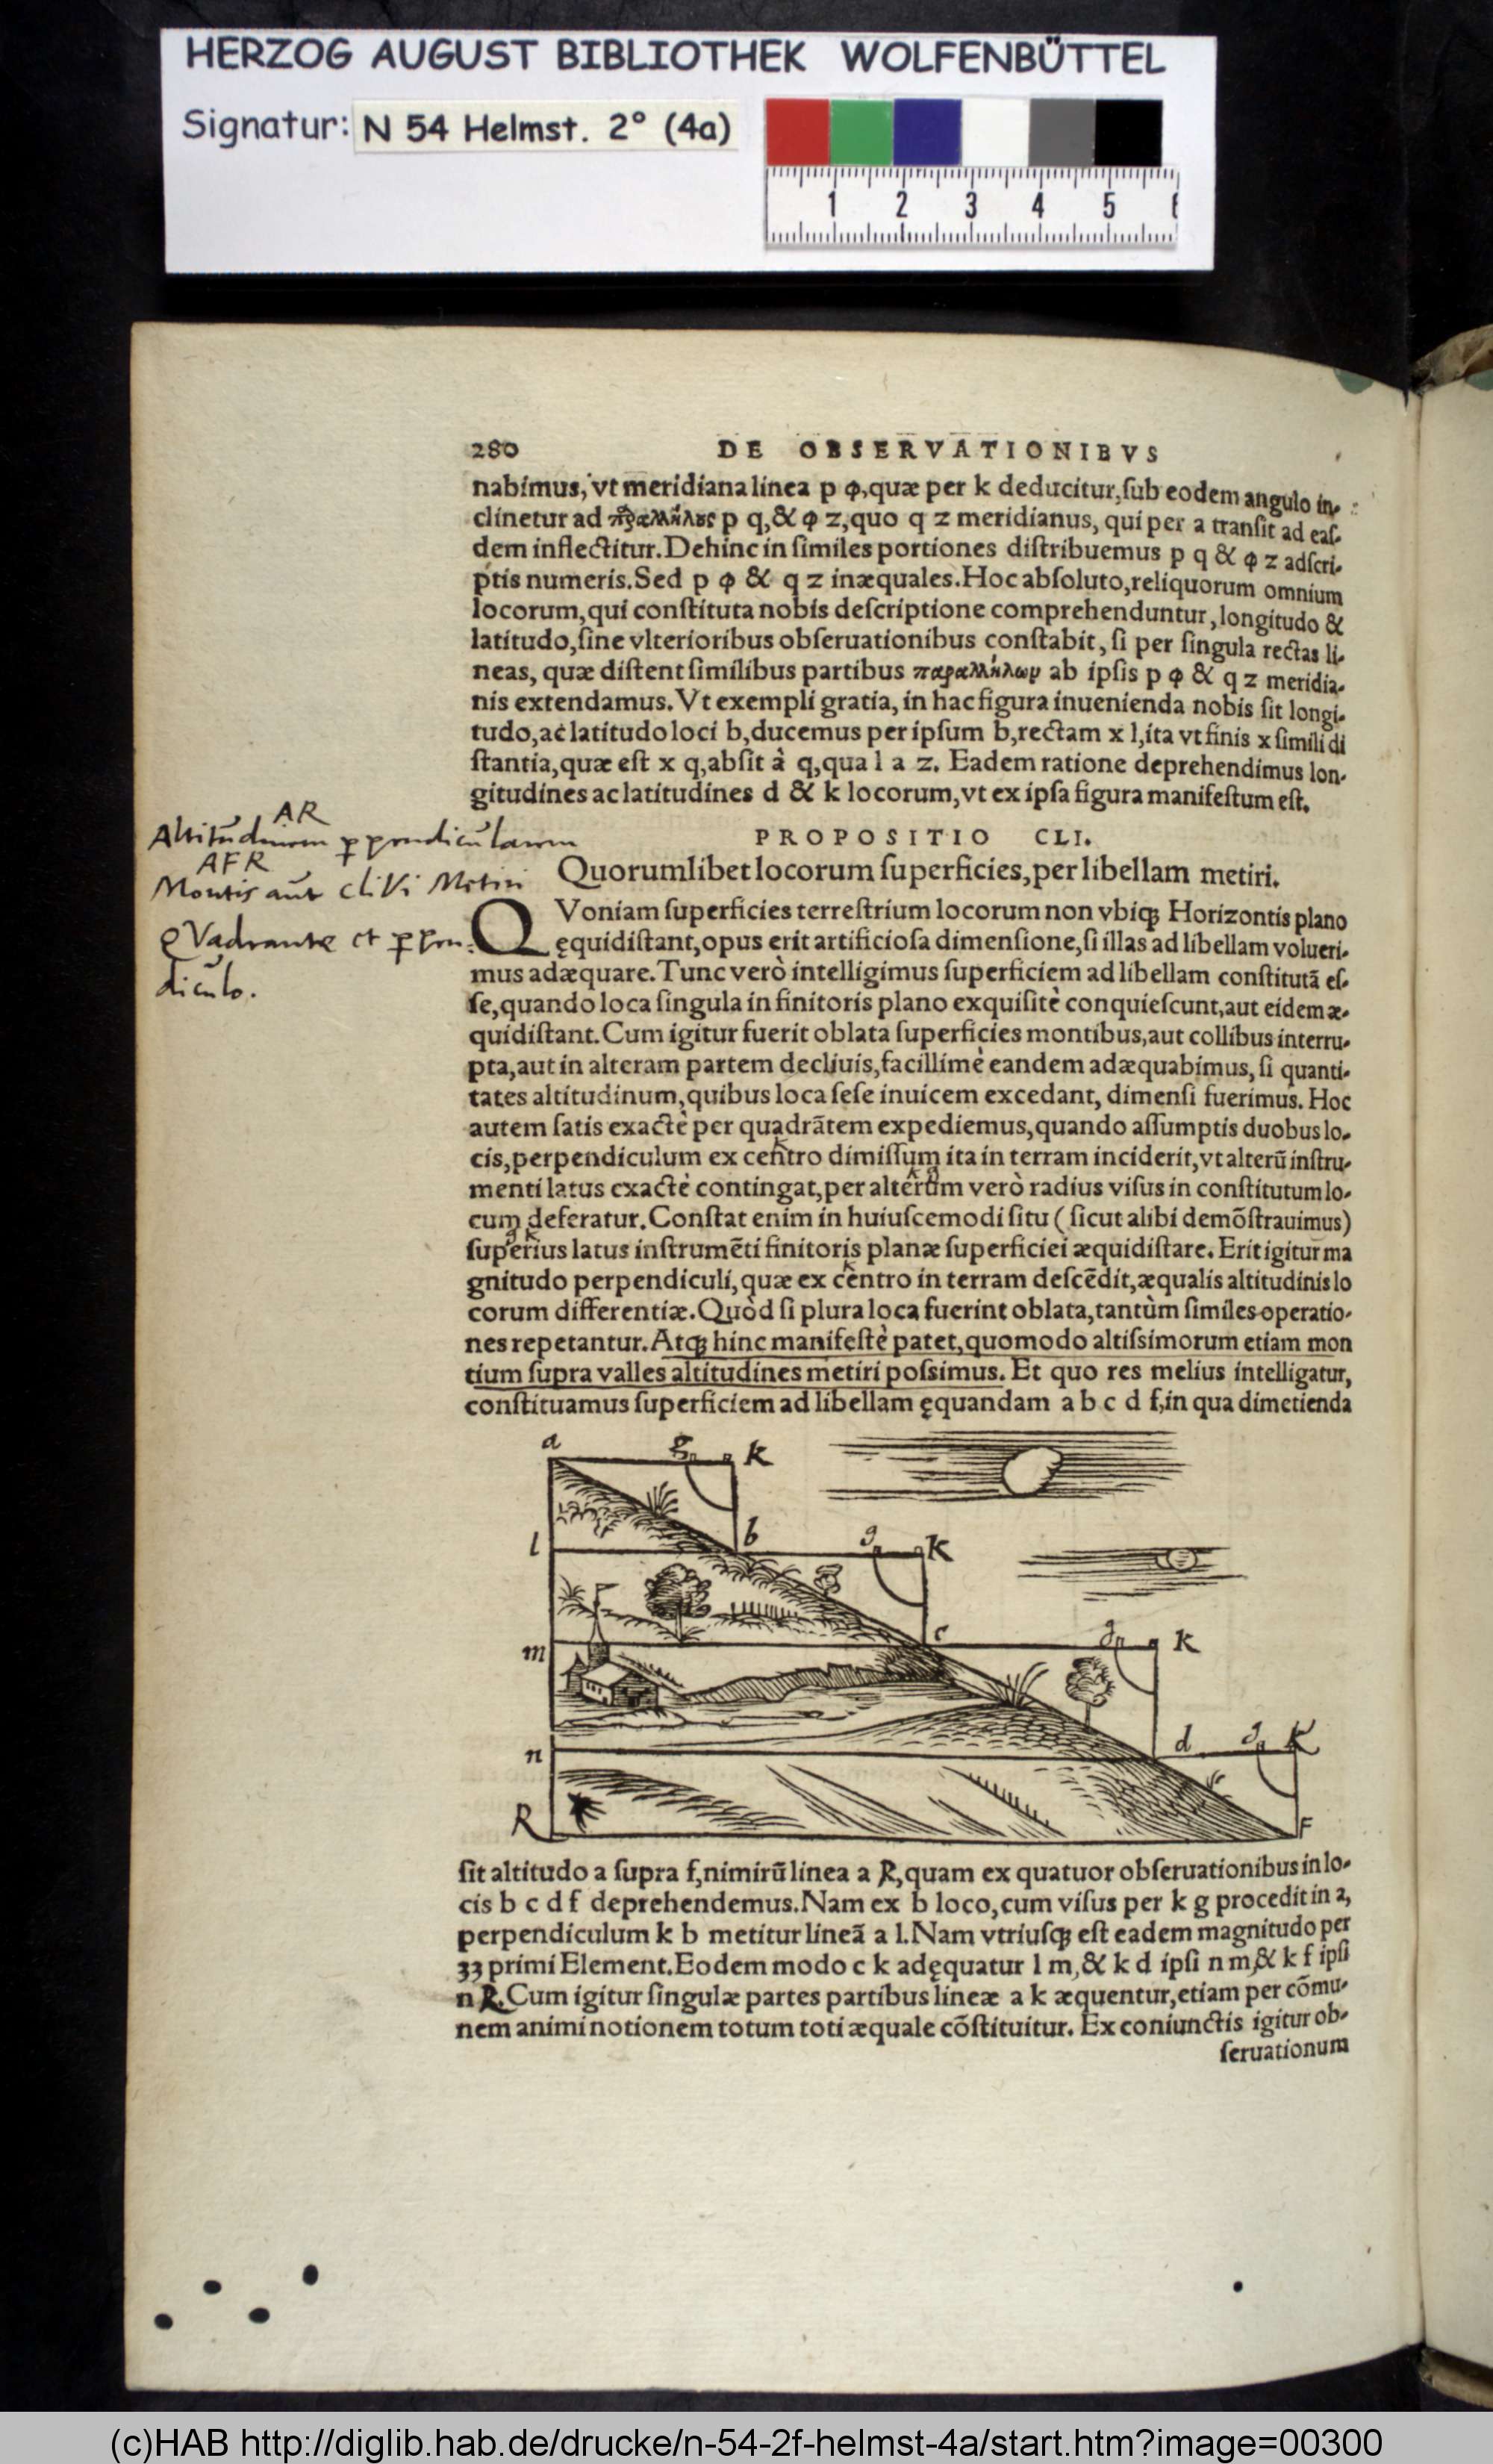 HERZOG AUGUST BIBLIOTHEK WOLFENBÜTTEL
Signatur: N 54 Helmst. 2° (4a)
1 2 3 4 5
280 DE OBSERVATIONIBVS
nabimus, vt meridiana linea p φ, quæ per k deducitur, ſub eodem angulo in-
clinetur ad p q, & φ z, quo q z meridianus, qui per a tranſit ad eaſ-
dem inflectitur. Dehinc in ſimiles portiones diſtribuemus p q & φ z adſcri-
ptis numeris. Sed p φ & q z inæquales. Hoc abſoluto, reliquorum omnium
locorum, qui conſtituta nobis deſcriptione comprehenduntur, longitudo &
latitudo, ſine vlterioribus obſeruationibus conſtabit, ſi per ſingula rectas li-
neas, quæ diſtent ſimilibus partibus παραλλήλων ab ipſis p φ & q z meridia-
nis extendamus. Vt exempli gratia, in hac figura inuenienda nobis ſit longi-
tudo, ac latitudo loci b, ducemus per ipſum b, rectam x l, ita vt finis x ſimili di
ſtantia, quæ eſt x q, abſit à q, qua l a z. Eadem ratione deprehendimus lon-
gitudines ac latitudines d & k locorum, vt ex ipſa figura manifeſtum eſt.
AR
Altitudinem ꝑpendicularem
AFR
Montis aut cliVi Metiri
QVadrante et ꝑpen-
diculo.
PROPOSITIO CLI.
Quorumlibet locorum ſuperficies, per libellam metiri.
QVoniam ſuperficies terreſtrium locorum non vbiqꝫ Horizontis plano
ęquidiſtant, opus erit artificioſa dimenſione, ſi illas ad libellam volueri-
mus adæquare. Tunc verò intelligimus ſuperficiem ad libellam conſtitutã eſ-
ſe, quando loca ſingula in finitoris plano exquiſitè conquieſcunt, aut eidem æ-
quidiſtant. Cum igitur fuerit oblata ſuperficies montibus, aut collibus interru-
pta, aut in alteram partem decliuis, facillimè eandem adæquabimus, ſi quanti-
tates altitudinum, quibus loca ſeſe inuicem excedant, dimenſi fuerimus. Hoc
autem ſatis exactè per quadrãtem expediemus, quando aſſumptis duobus lo-
cis, perpendiculum ex centro dimiſſum ita in terram inciderit, vt alterũ inſtru-
menti latus exactè contingat, per alterum verò radius viſus in conſtitutum lo-
cum deferatur. Conſtat enim in huiuſcemodi ſitu (ſicut alibi demõſtrauimus)
ſuperius latus inſtrumẽti finitoris planæ ſuperficiei æquidiſtare. Erit igitur ma
gnitudo perpendiculi, quæ ex centro in terram deſcẽdit, æqualis altitudinis lo
corum differentiæ. Quòd ſi plura loca fuerint oblata, tantùm ſimiles operatio-
nes repetantur. Atqꝫ hinc manifeſtè patet, quomodo altiſsimorum etiam mon
tium ſupra valles altitudines metiri poſsimus. Et quo res melius intelligatur,
conſtituamus ſuperficiem ad libellam ęquandam a b c d f, in qua dimetienda
a g k
l b g k
m c g k
n d g K
R F
ſit altitudo a ſupra f, nimirũ linea a R, quam ex quatuor obſeruationibus in lo-
cis b c d f deprehendemus. Nam ex b loco, cum viſus per k g procedit in a,
perpendiculum k b metitur lineã a l. Nam vtriuſqꝫ eſt eadem magnitudo per
33 primi Element. Eodem modo c k adęquatur l m, & k d ipſi n m, & k f ipſi
n R. Cum igitur ſingulæ partes partibus lineæ a k æquentur, etiam per cõmu-
nem animi notionem totum toti æquale cõſtituitur. Ex coniunctis igitur ob-
ſeruationum
(c)HAB http://diglib.hab.de/drucke/n-54-2f-helmst-4a/start.htm?image=00300